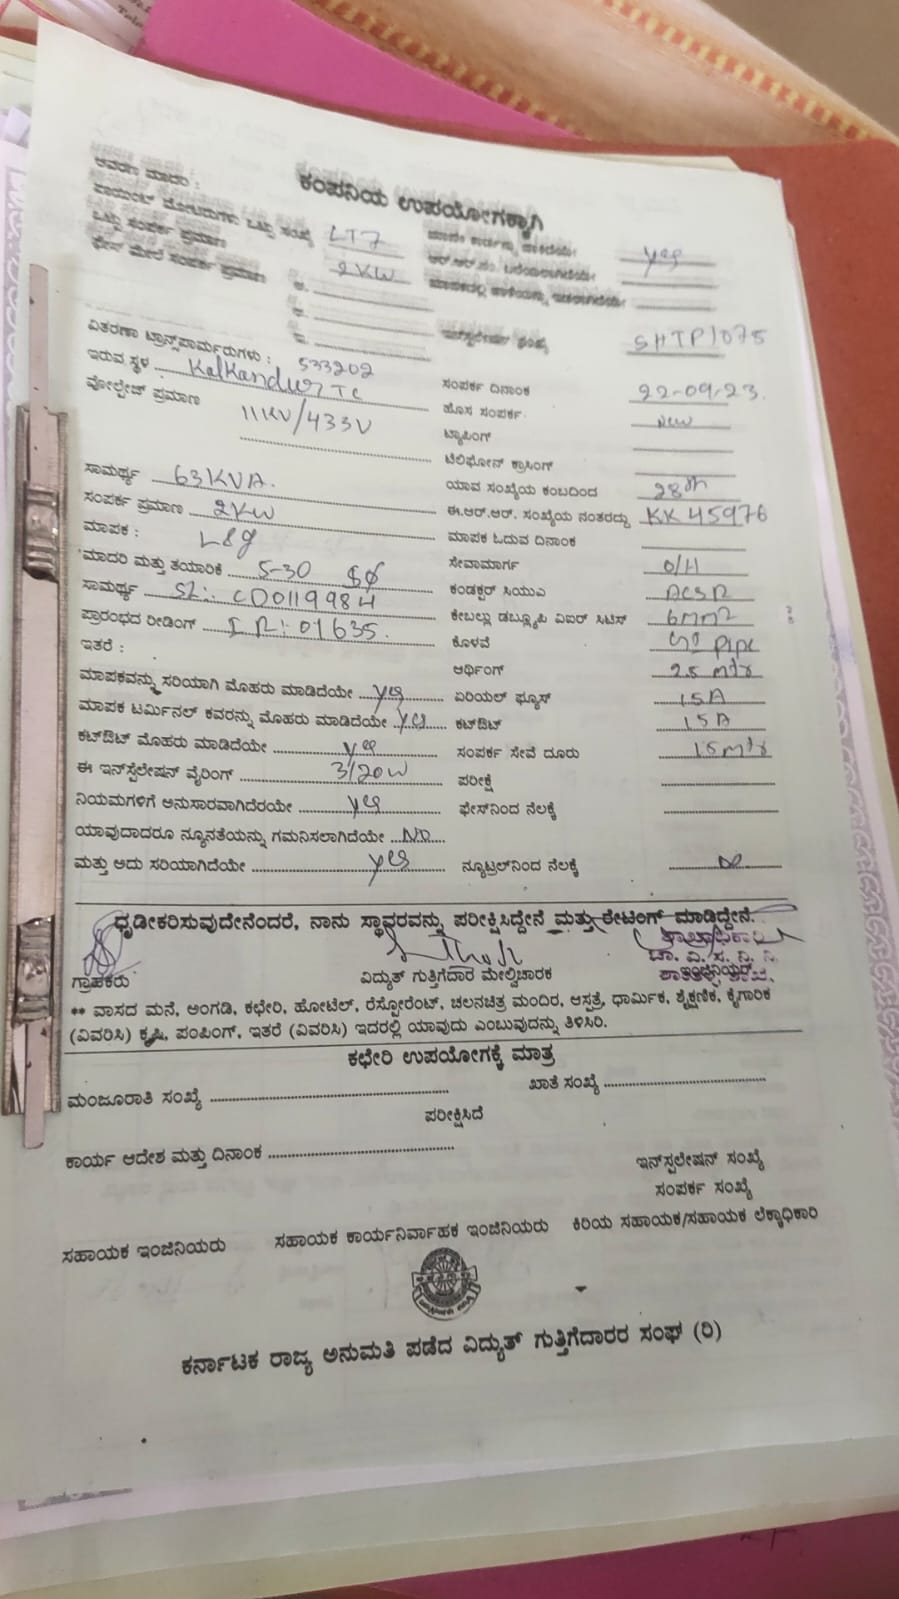 ಕಂಪನಿಯ ಉಪಯೋಗಕ್ಕಾಗಿ
ಆವರಣ ಮಾದರಿ :
ಪಾಯಿಂಟ್ ಮೋಟಾರುಗಳು ಒಟ್ಟು ಸಂಖ್ಯೆ LT7 yes
ಒಟ್ಟು ಸಂಪರ್ಕ ಪ್ರಮಾಣ 2KW
ಫೇಸ್ ಮೇಲೆ ಸಂಪರ್ಕ ಪ್ರಮಾಣ
ವಿತರಣಾ ಟ್ರಾನ್ಸ್‌ಫಾರ್ಮರುಗಳು : 533202 SHTP1075
ಇರುವ ಸ್ಥಳ TC ಸಂಪರ್ಕ ದಿನಾಂಕ 22-09-23.
ವೋಲ್ಟೇಜ್ ಪ್ರಮಾಣ 11KV/433V ಹೊಸ ಸಂಪರ್ಕ. New
ಟ್ಯಾಪಿಂಗ್
ಟೆಲಿಫೋನ್ ಕ್ರಾಸಿಂಗ್
ಸಾಮರ್ಥ್ಯ 63KVA. ಯಾವ ಸಂಖ್ಯೆಯ ಕಂಬದಿಂದ 28th
ಸಂಪರ್ಕ ಪ್ರಮಾಣ 2KW ಈ.ಆರ್.ಆರ್. ಸಂಖ್ಯೆಯ ನಂತರದ್ದು KK45976
ಮಾಪಕ : L&g ಮಾಪಕ ಓದುವ ದಿನಾಂಕ
ಮಾದರಿ ಮತ್ತು ತಯಾರಿಕೆ 5-30 ಸೇವಾಮಾರ್ಗ O/H
ಸಾಮರ್ಥ್ಯ SL:. CD0119984 ಕಂಡಕ್ಟರ್ ಸಿಯುಎ ACSR
ಪ್ರಾರಂಭದ ರೀಡಿಂಗ್ I R: 01635. ಕೇಬಲ್ಲು ಡಬ್ಲ್ಯೂಪಿ ಎಐರ್ ಸಿಟಿಸ್ 6mm2
ಇತರೆ : ಕೊಳವೆ GI pipe
ಆರ್ಥಿಂಗ್ 2.5 mtr
ಮಾಪಕವನ್ನು ಸರಿಯಾಗಿ ಮೊಹರು ಮಾಡಿದೆಯೇ yes ಏರಿಯಲ್ ಫ್ಯೂಸ್ 15A
ಮಾಪಕ ಟರ್ಮಿನಲ್ ಕವರನ್ನು ಮೊಹರು ಮಾಡಿದೆಯೇ yes ಕಟ್‌ಔಟ್ 15A
ಕಟ್‌ಔಟ್ ಮೊಹರು ಮಾಡಿದೆಯೇ yes ಸಂಪರ್ಕ ಸೇವೆ ದೂರು 15mtr
ಈ ಇನ್‌ಸ್ಪಲೇಷನ್ ವೈರಿಂಗ್ 3/20W ಪರೀಕ್ಷೆ
ನಿಯಮಗಳಿಗೆ ಅನುಸಾರವಾಗಿದೆರಯೇ yes ಫೇಸ್‌ನಿಂದ ನೆಲಕ್ಕೆ
ಯಾವುದಾದರೂ ನ್ಯೂನತೆಯನ್ನು ಗಮನಿಸಲಾಗಿದೆಯೇ No
ಮತ್ತು ಅದು ಸರಿಯಾಗಿದೆಯೇ yes ನ್ಯೂಟ್ರಲ್‌ನಿಂದ ನೆಲಕ್ಕೆ
ಧೃಡೀಕರಿಸುವುದೇನೆಂದರೆ, ನಾನು ಸ್ಥಾವರವನ್ನು ಪರೀಕ್ಷಿಸಿದ್ದೇನೆ ಮತ್ತು ರೇಟಿಂಗ್ ಮಾಡಿದ್ದೇನೆ.
ಗ್ರಾಹಕರು ವಿದ್ಯುತ್ ಗುತ್ತಿಗೆದಾರ ಮೇಲ್ವಿಚಾರಕ ಇಂಜಿನಿಯರ್
** ವಾಸದ ಮನೆ, ಅಂಗಡಿ, ಕಛೇರಿ, ಹೋಟೆಲ್, ರೆಸ್ಟೋರೆಂಟ್, ಚಲನಚಿತ್ರ ಮಂದಿರ, ಆಸ್ಪತ್ರೆ, ಧಾರ್ಮಿಕ, ಶೈಕ್ಷಣಿಕ, ಕೈಗಾರಿಕೆ
(ವಿವರಿಸಿ) ಕೃಷಿ, ಪಂಪಿಂಗ್, ಇತರೆ (ವಿವರಿಸಿ) ಇದರಲ್ಲಿ ಯಾವುದು ಎಂಬುವುದನ್ನು ತಿಳಿಸಿರಿ.
ಕಛೇರಿ ಉಪಯೋಗಕ್ಕೆ ಮಾತ್ರ
ಮಂಜೂರಾತಿ ಸಂಖ್ಯೆ ಖಾತೆ ಸಂಖ್ಯೆ
ಪರೀಕ್ಷಿಸಿದೆ
ಕಾರ್ಯ ಆದೇಶ ಮತ್ತು ದಿನಾಂಕ
ಇನ್‌ಸ್ಪಲೇಷನ್ ಸಂಖ್ಯೆ
ಸಂಪರ್ಕ ಸಂಖ್ಯೆ
ಸಹಾಯಕ ಇಂಜಿನಿಯರು ಸಹಾಯಕ ಕಾರ್ಯನಿರ್ವಾಹಕ ಇಂಜಿನಿಯರು ಕಿರಿಯ ಸಹಾಯಕ/ಸಹಾಯಕ ಲೆಕ್ಕಾಧಿಕಾರಿ
ಕರ್ನಾಟಕ ರಾಜ್ಯ ಅನುಮತಿ ಪಡೆದ ವಿದ್ಯುತ್ ಗುತ್ತಿಗೆದಾರರ ಸಂಘ (ರಿ)